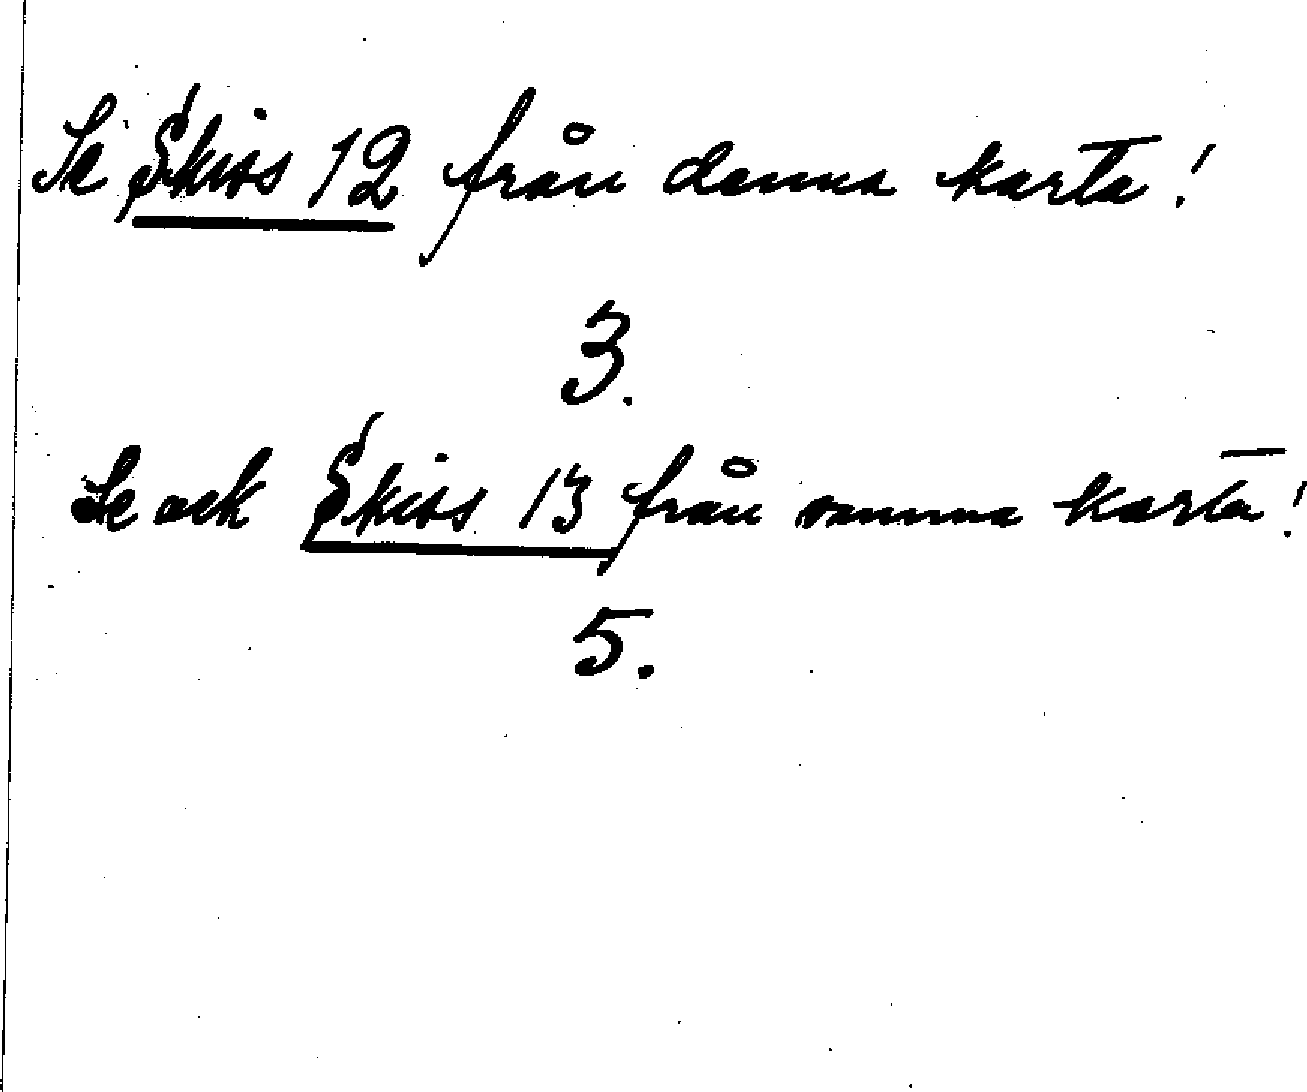 Se Skiss 12 från denna karta!
3.
Se ock Skiss 13 från samma karta!
5.